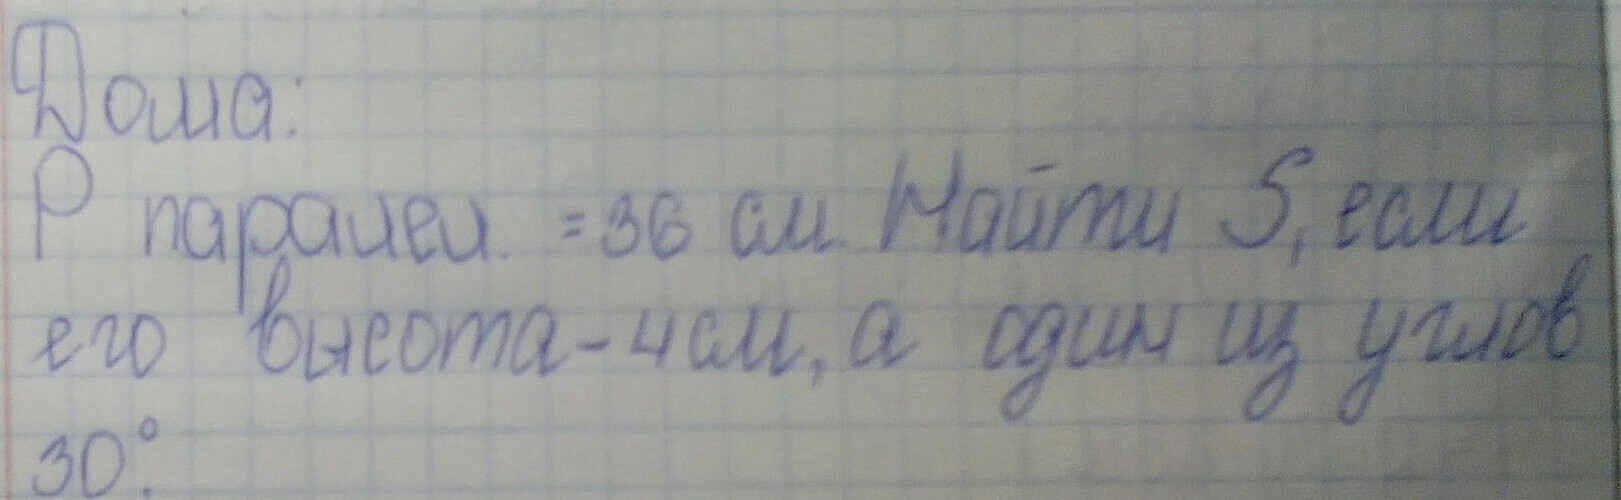 Дома:
Р паралел. = 36 см. Найти S, если
его высота - 4 см, а один из углов
30°.